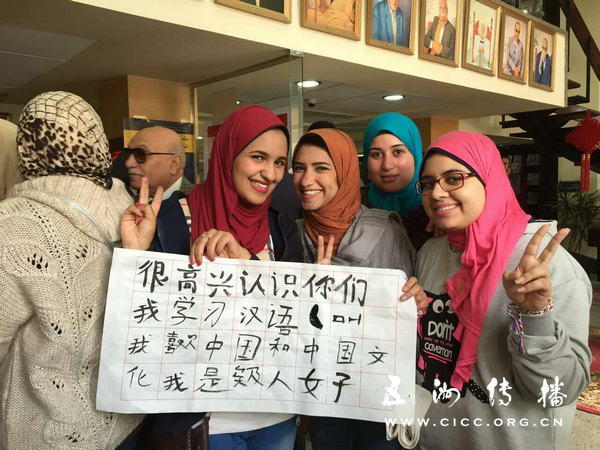 很高兴认识你们
我学习汉语
我喜欢中国和中国文
化我是人女子
DON'T
caveman
五洲传播
WWW.CICC.ORG.CN